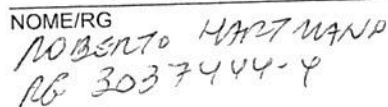 NOME/RG
ROBERTO HARTMANN
RG 3037444-4